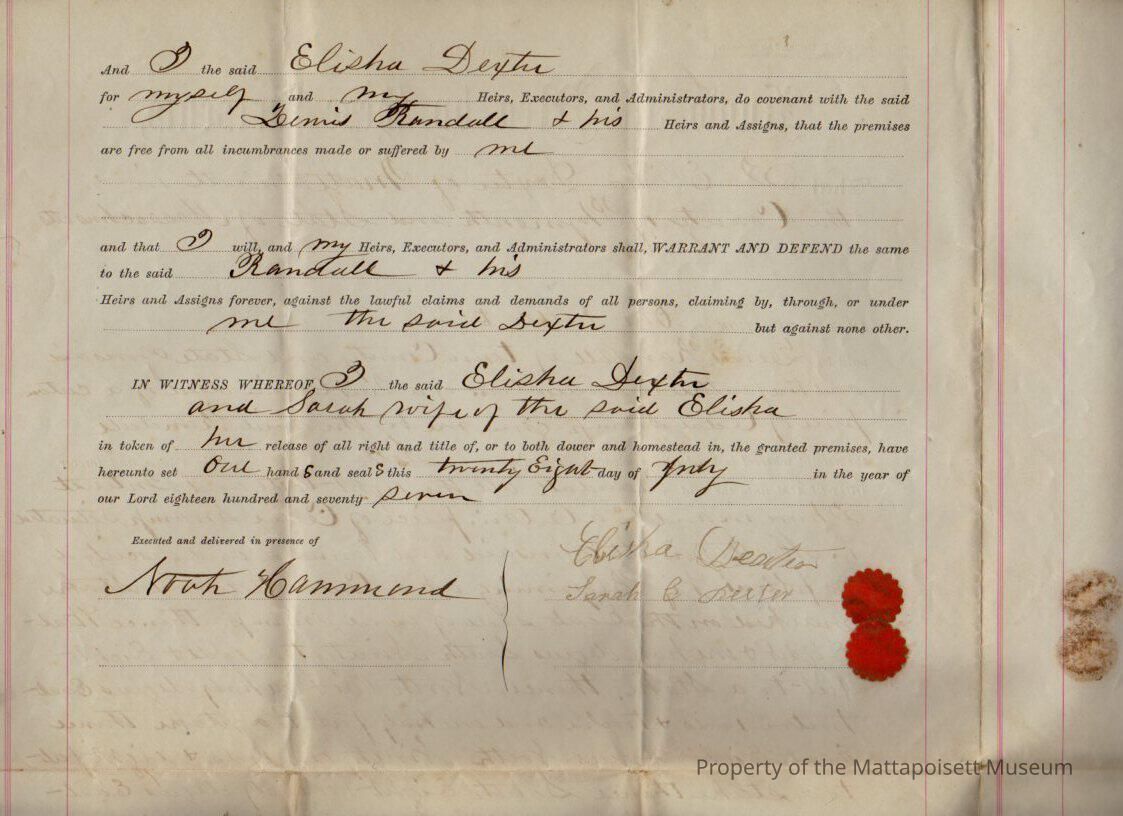 And I the said Elisha Dexter
for myself and my Heirs, Executors, and Administrators, do covenant with the said
Lemis Randall & his Heirs and Assigns, that the premises
are free from all incumbrances made or suffered by me
and that I will, and my Heirs, Executors, and Administrators shall, WARRANT AND DEFEND the same
to the said Randall & his
Heirs and Assigns forever, against the lawful claims and demands of all persons, claiming by, through, or under
me the said Dexter but against none other.
IN WITNESS WHEREOF, I the said Elisha Dexter
and Sarah wife of the said Elisha
in token of her release of all right and title of, or to both dower and homestead in, the granted premises, have
hereunto set our hands and seals this twenty Eight day of July in the year of
our Lord eighteen hundred and seventy seven
Executed and delivered in presence of
Noah Hammond
Elisha Dexter
Sarah C Dexter
Property of the Mattapoisett Museum